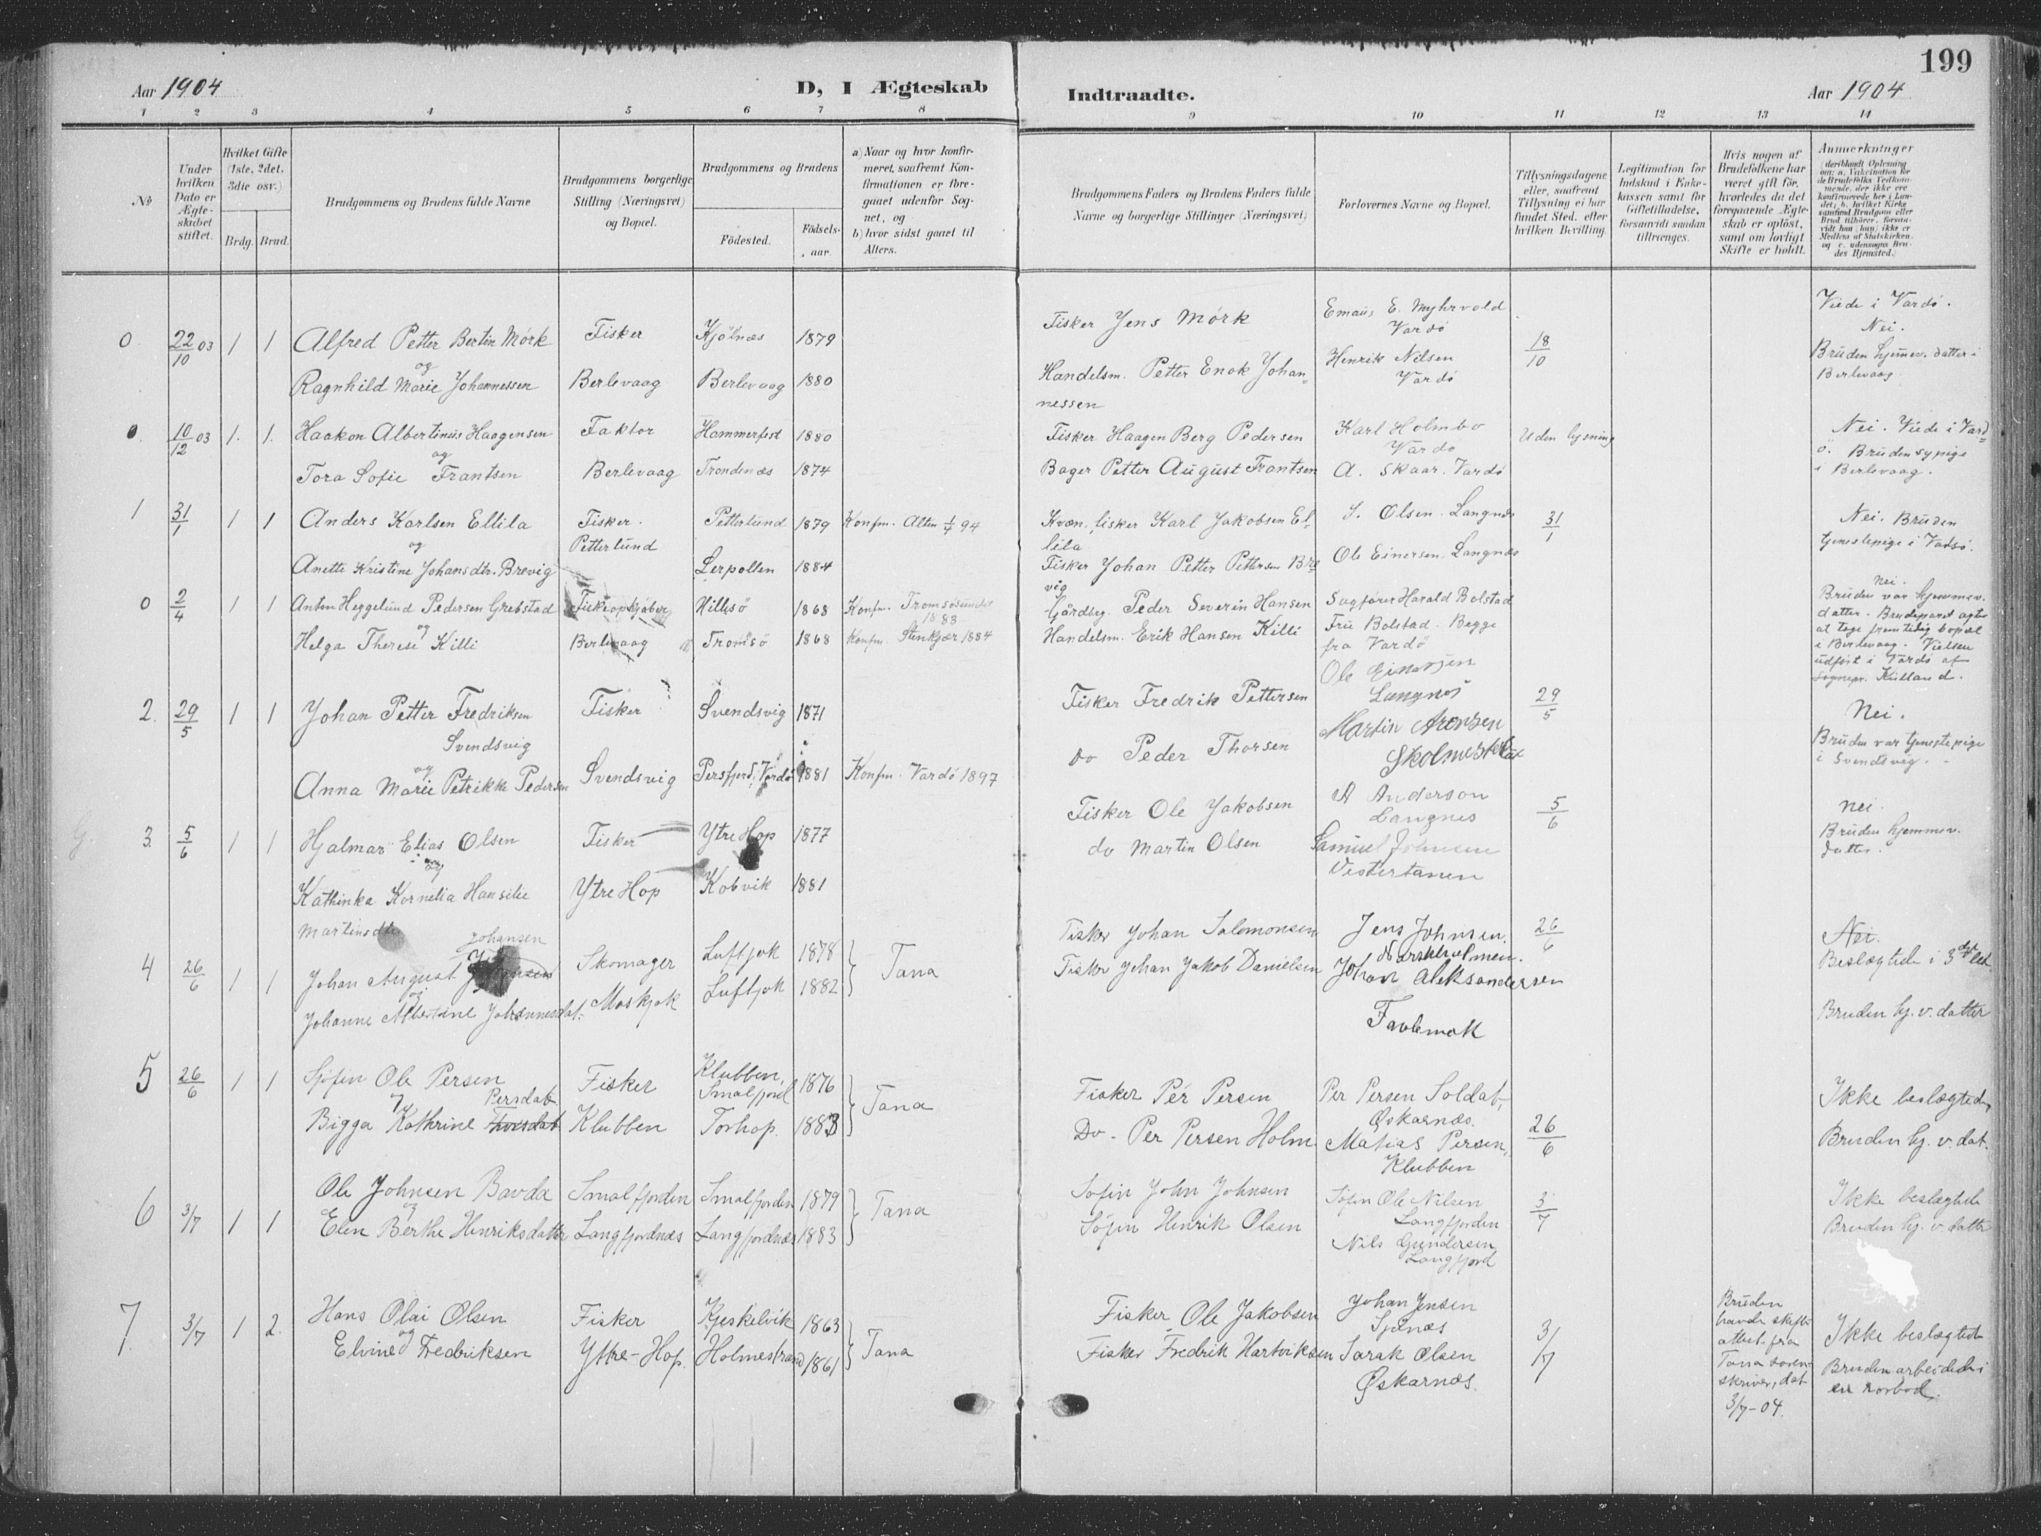 199
Aar 1904
D, I Ægteskab
Indtraadte.
Aar 1904
1 2 3 4 5 6 7 8 9 10 11 12 13 14
No
Under hvilken Dato er Ægteskabet stiftet.
Hvilket Gifte (1ste, 2det, 3die osv.)
Brdg. Brud.
Brudgommens og Brudens fulde Navne
Brudgommens borgerlige Stilling (Næringsvei) og Bopæl.
Brudgommens og Brudens
Fødested.
Fødselsaar
a) Naar og hvor konfirmeret, saafremt Konfirmationen er foregaaet udenfor Sognet, og
b) hvor sidst gaaet til Alters.
Brudgommens Faders og Brudens Faders fulde Navne og borgerlige Stillinger (Næringsvei)
Forlovernes Navne og Bopæl.
Tillysningsdagene eller, saafremt Tillysning ei har fundet Sted, efter hvilken Bevilling.
Legitimation for Indskud i Enkekassen samt for Giftetilladelse, forsaavidt saadan tiltrænges.
Hvis nogen af Brudefolkene har været gift før, hvorledes da det foregaaende Ægteskab er opløst, samt om lovligt Skifte er holdt.
Anmerkninger
0 22/10 03 1 1 Alfred Petter Bertin Mørk Fisker Kjølnæs 1879
og
Ragnhild Marie Johannessen Berlevaag Berlevaag 1880
Fisker Jens Mørk
Handelsm. Petter Enok Johannessen
Emaus E. Myhrvold Vardö
Henrik Nilsen Vardö
18/10
Viede i Vardö.
Nei.
Bruden hjemmev. datter i Berlevaag.
0. 10/12 03 1. 1. Haakon Albertinius Haagensen Faktor Hammerfest 1880
og
Tora Sofie Frantsen Berlevaag Trondenæs 1874
Fisker Haagen Berg Pedersen
Bager Petter August Frantsen
Karl Holmbo Vardö
A. Skaar. Vardö
Uden lysning
Nei. Viede i Vardö. Bruden sypige i Berlevaag.
1 31/1 1 1 Anders Karlsen Ellila Fisker. Petterlund 1879 Konfm. Alten 1/7 94
og Petterlund
Anette Kristine Johansdtr. Brevig Lerpollen 1884
Kvæn, fisker Karl Jakobsen Ellila
Fisker Johan Petter Pettersen Brevig
S. Olsen. Langnæs
Ole Einersen. Langnæs
31/1
Nei. Bruden tjenestepige i Vadsø.
0 2/4 1 1 Anton Heggelund Pedersen Grebstad Fiskeopkjøber Hillesö 1868 Konfm. Tromsøsundet 1883
og
Helga Therese Killi Berlevaag Tromsö 1868 Konfm. Stenkjær 1884
Gårdbg. Peder Severin Hansen
Handelsm. Erik Hansen Killi
Sagfører Harald Bolstad
Fru Bolstad. Begge fra Vardö
nei.
Bruden var hjemmev. datter. Brudeparet agter at tage fremtidig bopæl i Berlevaag. Vielsen udført i Vardö af Sognepr. Kulland.
2. 29/5 1 1 Johan Petter Fredriksen Fisker Svendsvig 1871
Svendsvig
og
Anna Marie Petrikke Pedersen Svendsvig Persfjord, Vardö 1881 Konfm. Vardö 1897
Fisker Fredrik Pettersen
do Peder Thorsen
Ole Einersen
Langnæs
Martin Arentzen
29/5
Nei.
Bruden var tjenestepige i Svendsvig.
3. 5/6 1 1 Hjalmar Elias Olsen Fisker Ytre Hop 1877
og
Kathinka Kornelia Hansine Martinsdtr Ytre Hop Kobvik 1881
Fisker Ole Jakobsen
do Martin Olsen
A Anderson
Langnes
Samuel Johnsen
Vestertanen
5/6
nei.
Bruden hjemmev. datter.
4 26/6 1 1 Johan August Johansen Skomager Luftjok 1878
og
Johanne Albertine Johannesdat. Maskjok Luftjok 1882
Tana
Fisker Johan Salomonsen
Fisker Johan Jakob Danielsen
Jens Johnsen.
Norskholmen.
Johan Aleksandersen
26/6
Nei.
Beslægtede i 3die led.
Bruden hj. v. datter
5 26/6 1 1 Sjøfin Ole Persen Fisker Klubben, Smalfjord 1876
og Persdat.
Bigga Kathrine Klubben Torhop. 1883
Tana
Fisker Per Persen
Do - Per Persen Holm
Per Persen Soldat,
Øskarnæs.
Matias Persen,
Klubben
26/6
Ikke beslægtede,
Bruden hj. v. dat.
6 3/7 1 1 Ole Johnsen Bavda Smalfjorden Smalfjorden 1879
og
Elen Berthe Henriksdatter Langfjordnæs Langfjordnæs 1883
Tana
Søfin John Johnsen
Søfin Henrik Olsen
Søfin Ole Nilsen
Langfjorden
Nils Gundersen
Langfjord
3/7
Ikke beslægtede
Bruden hj. v. datter
7. 3/7 1 2. Hans Olai Olsen Fisker Kjeskelvik 1863
og
Elvine Fredriksen Yttre-Hop. Holmestrand 1861
Tana
Fisker Ole Jakobsen
Fisker Fredrik Hartviksen
Johan Jensen
Sjånæs
Sarak Olsen
Øskarnæs.
3/7
Bruden havde skifteattest fra Tana sorenskriver, dat 3/7-04.
Ikke beslægtede
Bruden arbeidede i